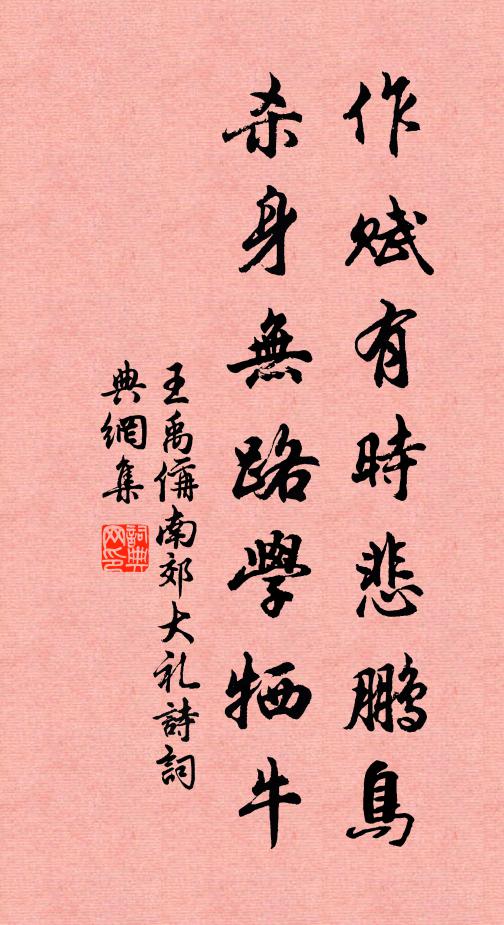 作賦有時悲鵬鳥
杀身無路學牺牛
王禹偁南郊大礼詩詞
典網集
詞典
网印